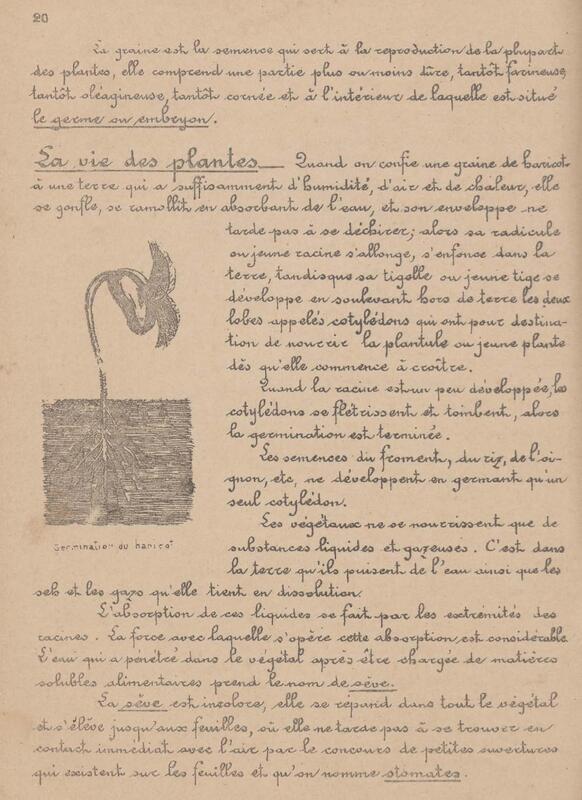 20
La graine est la semence qui sert à la reproduction de la plupart
des plantes, elle comprend une partie plus ou moins dûre, tantôt farineuse,
tantôt oléagineuse, tantôt cornée et à l'intérieur de laquelle est situé
le germe ou embryon.
La vie des plantes Quand on confie une graine de haricot
à une terre qui a suffisamment d'humidité, d'air et de chaleur, elle
se gonfle, se ramollit en absorbant de l'eau, et son enveloppe ne
tarde pas à se déchirer; alors sa radicule
ou jeune racine s'allonge, s'enfonce dans la
terre, tandisque sa tigelle ou jeune tige se
développe en soulevant hors de terre les deux
lobes appelés cotylédons qui ont pour destina-
tion de nourrir la plantule ou jeune plante
dès qu'elle commence à croître.
Quand la racine est un peu développée, les
cotylédons se flétrissent et tombent, alors
la germination est terminée.
Les semences du froment, du riz, de l'oi-
gnon, etc, ne développent en germant qu'un
seul cotylédon.
Les végétaux ne se nourrissent que de
substances liquides et gazeuses. C'est dans
la terre qu'ils puisent de l'eau ainsi que les
sels et les gazs qu'elle tient en dissolution.
Germination du haricot
L'absorption de ces liquides se fait par les extrémités des
racines. La force avec laquelle s'opère cette absorption est considérable.
L'eau qui a pénétré dans le végétal après être chargée de matières
solubles alimentaires prend le nom de sève.
La sève est incolore, elle se répand dans tout le végétal
et s'élève jusqu'aux feuilles, où elle ne tarde pas à se trouver en
contact immédiat avec l'air par le concours de petites ouvertures
qui existent sur les feuilles et qu'on nomme stomates.